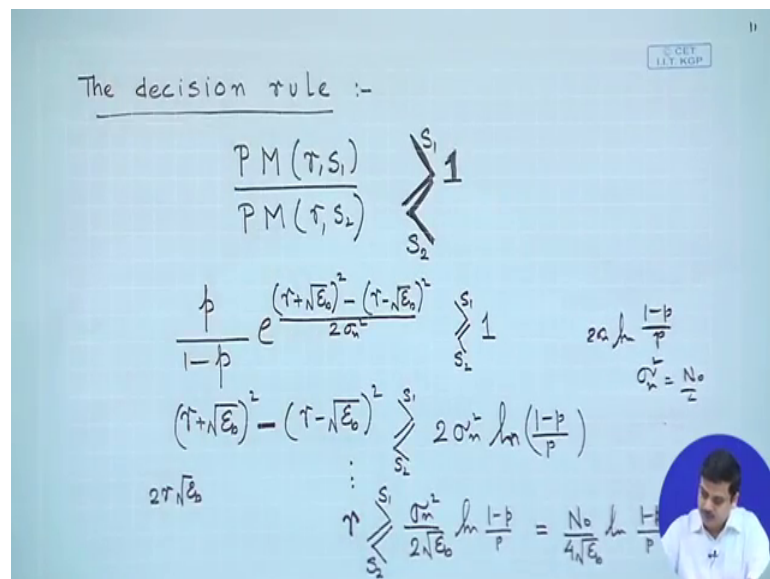 11
© CET
I.I.T. KGP
The decision rule :-
PM(r,S₁) / PM(r,S₂) ≷ (S₁, S₂) 1
p / (1-p) e^{((r+√ε_b)² - (r-√ε_b)²) / 2σ_n²} ≷ (S₁, S₂) 1
ln (1-p)/p
σ_n² = N₀/2
(r+√ε_b)² - (r-√ε_b)² ≷ (S₁, S₂) 2σ_n² ln((1-p)/p)
⋮
2r√ε_b
r ≷ (S₁, S₂) σ_n²/(2√ε_b) ln (1-p)/p = N₀/(4√ε_b) ln